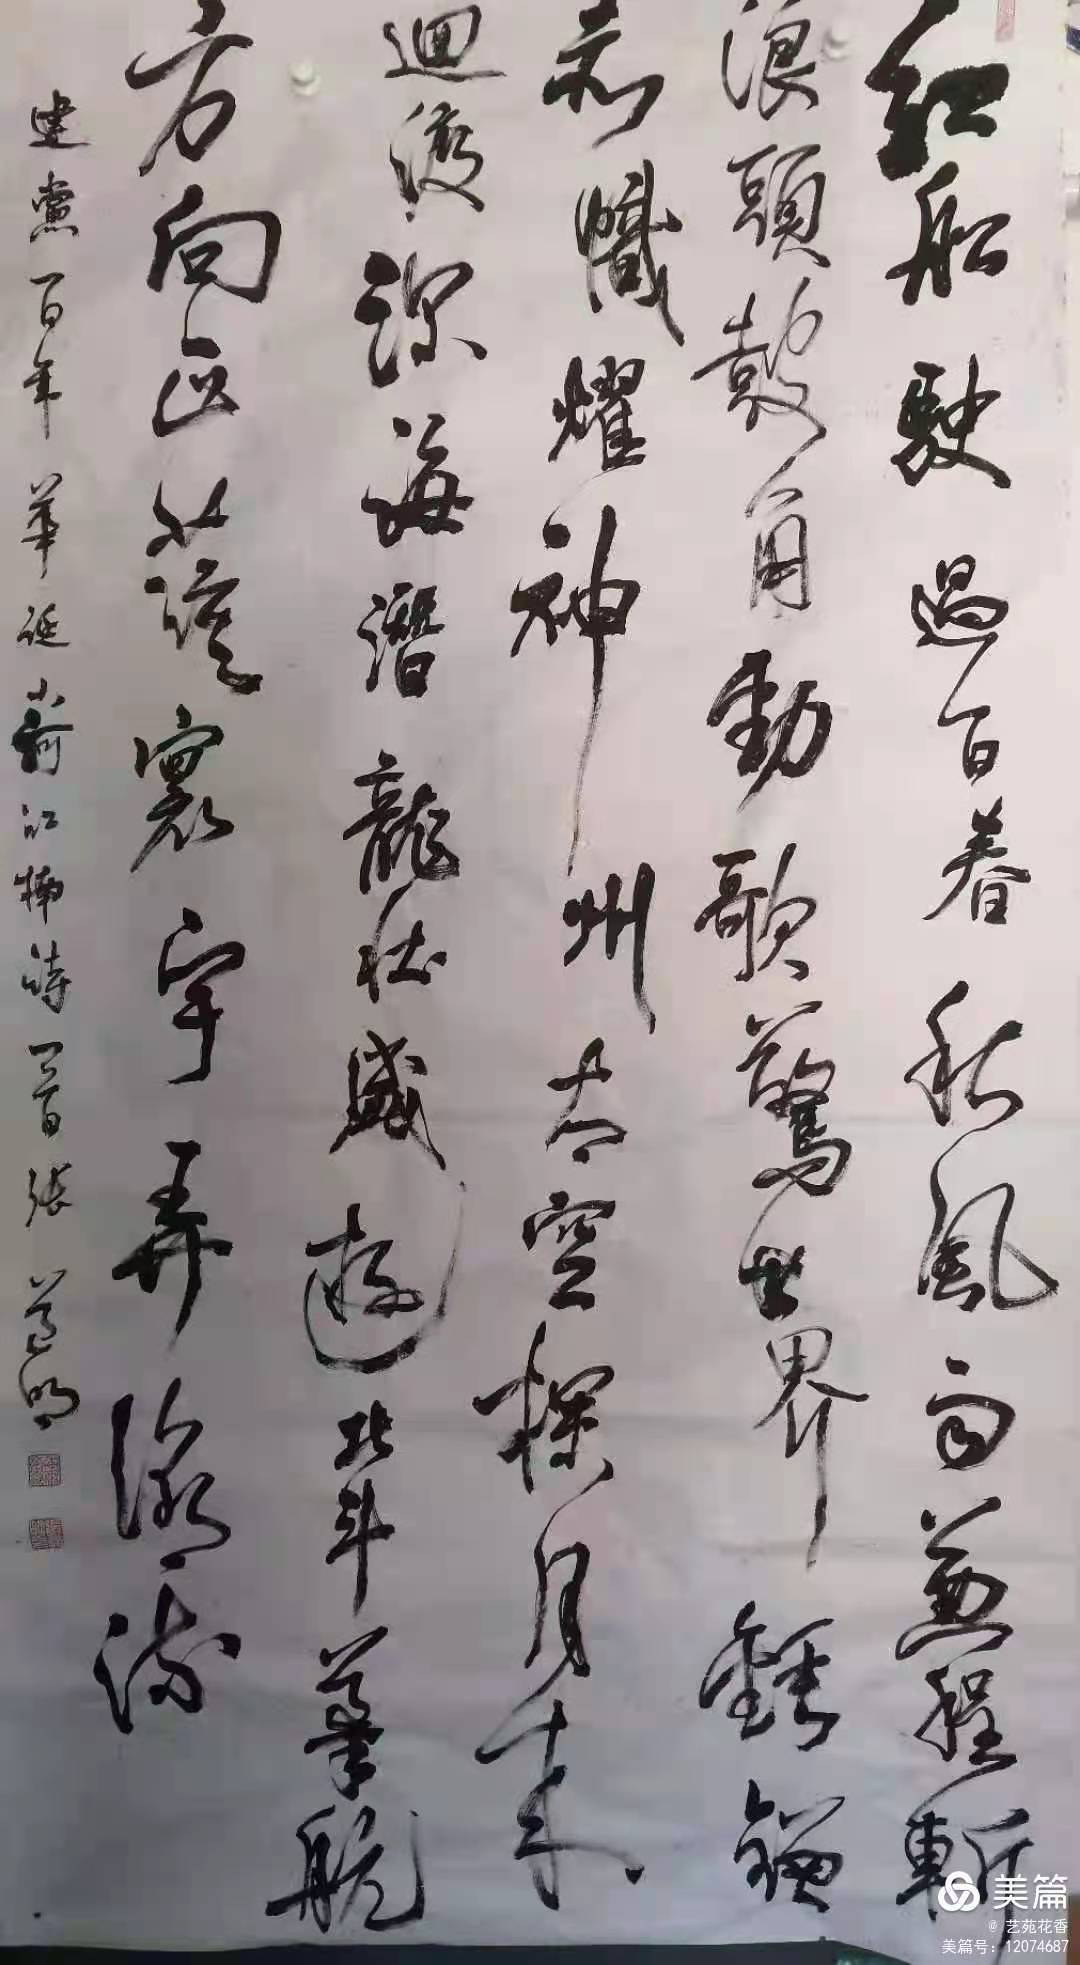 紅船駛過百春秋風雨兼程斬
浪頭鼓角動歌驚世界錘鐮
赤幟耀神州太空探月未
迴渡深海潛龍壯盛遊北斗導航
方向正舊寰宇弄潮流
建黨百年華誕 詩一首 張道明
美篇
@ 艺苑花香
美篇号：12074687